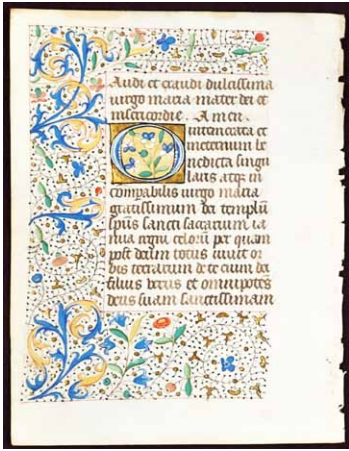 Audi et exaudi dulcissima
uirgo maria mater dei et
misericordie . Amen
O intemerata et
in eternum be
nedicta singu
laris atq; in
compabilis uirgo maria
gratissimum dei templū
spūs sancti sacrarium ia
nua regni celorū per quam
post deum totus uiuit or
bis terrarum de te enim dei
filius uerus et omnipotēs
deus suam sanctissimam